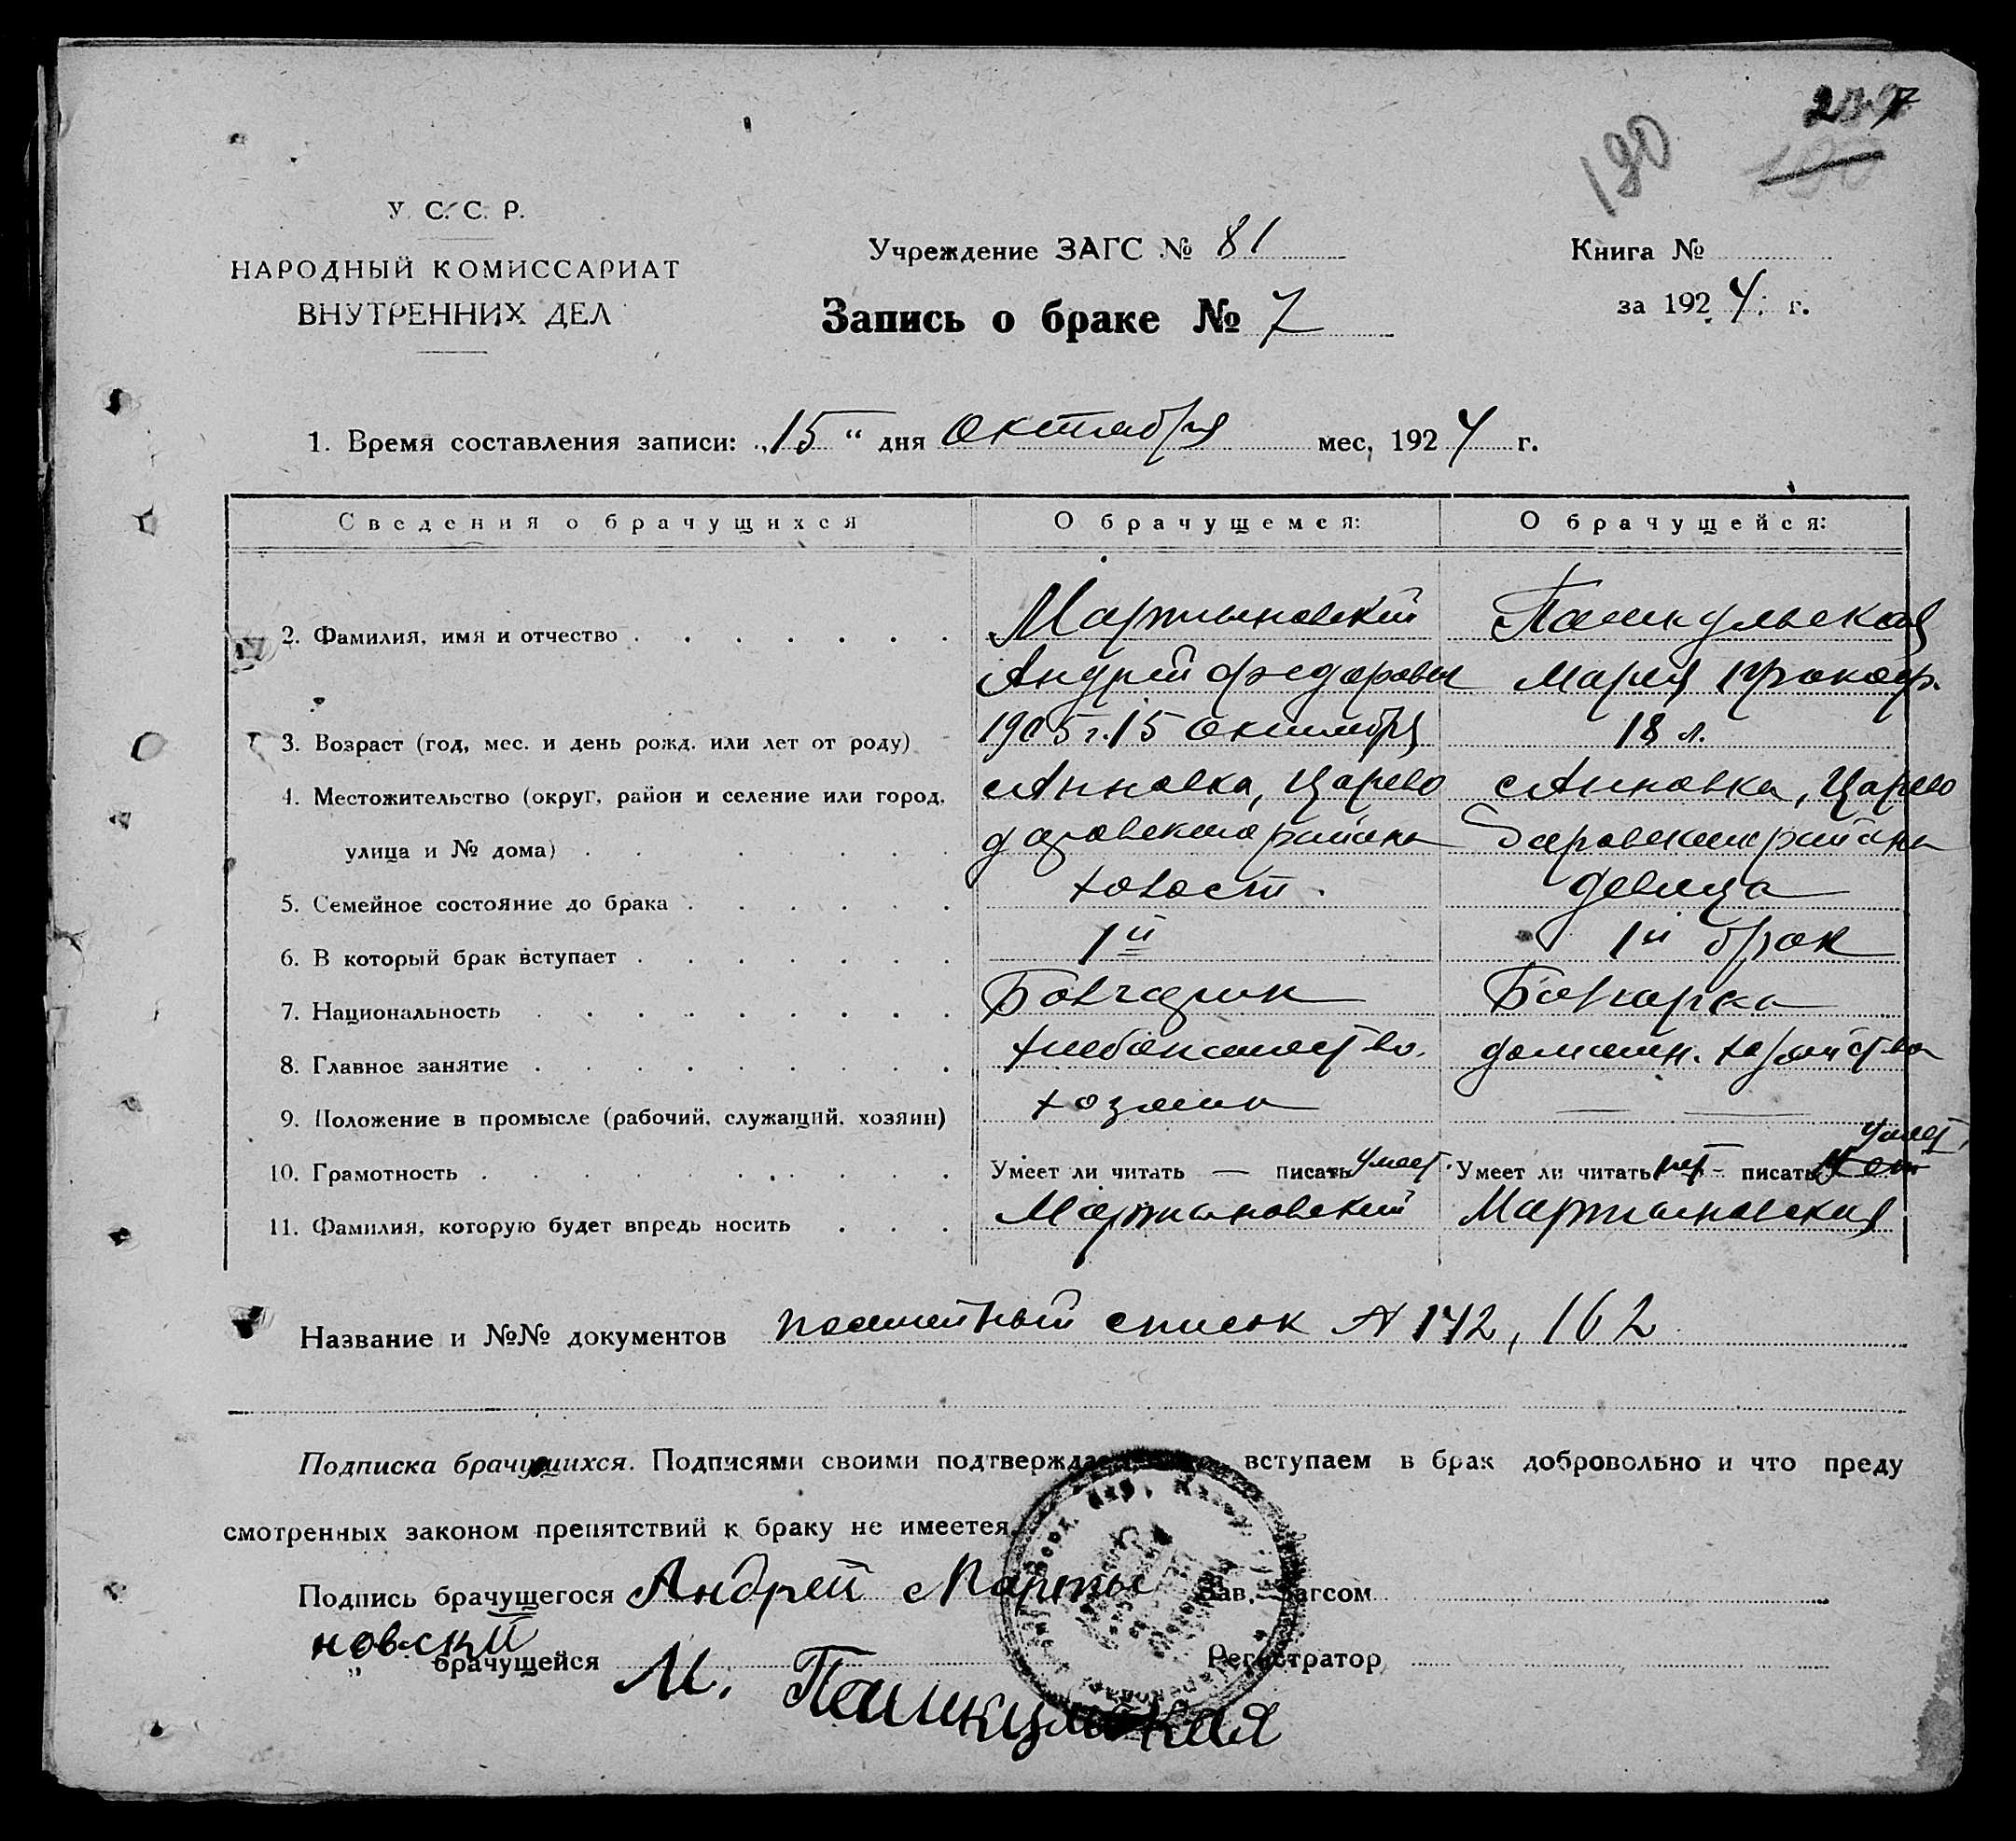 237
190
190
У. С. С. Р.
НАРОДНЫЙ КОМИССАРИАТ
ВНУТРЕННИХ ДЕЛ
Учреждение ЗАГС № 81
Книга №
Запись о браке № 7
за 1924 г.
1. Время составления записи: „15“ дня Октября мес, 1924 г.
Сведения о брачущихся О брачущемся: О брачущейся:
2. Фамилия, имя и отчество Мартыновский Пашкульская
Андрей Федорович Мария Прокоф.
3. Возраст (год, мес. и день рожд. или лет от роду) 1905 г. 15 октября 18 л.
4. Местожительство (округ, район и селение или город, с Анновка, Царево с Анновка, Царево
улица и № дома) даровского района Даровского района
5. Семейное состояние до брака холост. девица
6. В который брак вступает 1й 1й брак
7. Национальность Болгарин Болгарка
8. Главное занятие хлебопашество. домашн. хозяйство
9. Положение в промысле (рабочий, служащий, хозяин) хозяин — —
10. Грамотность Умеет ли читать — писать умеет. Умеет ли читать — писать умеет
11. Фамилия, которую будет впредь носить Мартыновский Мартыновская
Название и №№ документов список № 142, 162
Подписка брачущихся. Подписями своими вступаем в брак добровольно и что преду
смотренных законом препятствий к браку не имеется
Подпись брачущегося Андрей Марты Зав. Загсом
новский
„ брачущейся М. Пашкульская Регистратор